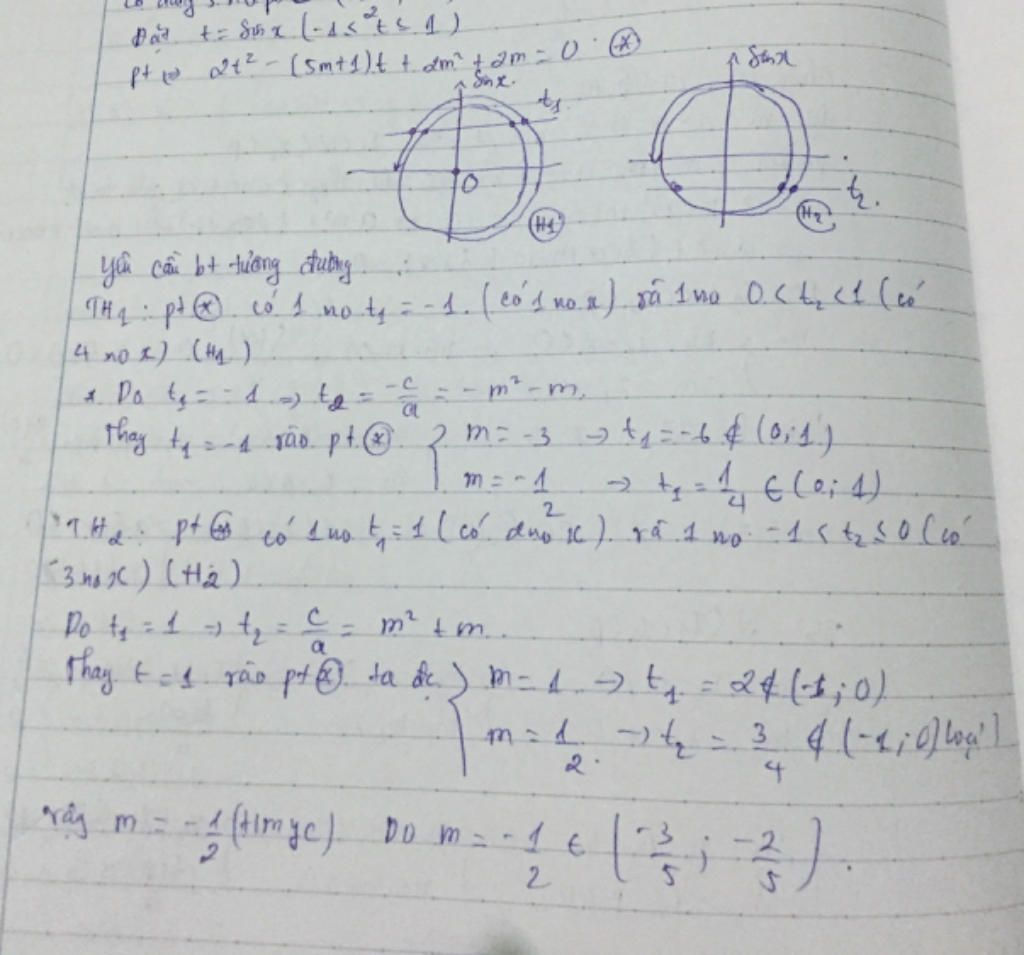 Đặt t = sin x (-1 ≤ t ≤ 1)
pt ⇔ 2t² - (5m+1)t + 2m² + 2m = 0 (*)
sin x
t₁
O
H₁
sin x
t₂
H₂
Yêu cầu bt tương đương :
TH₁ : pt (*) có 1 no t₁ = -1. (có 1 no x) và 1 no 0 < t₂ < 1 (có
4 no x) (H₁)
* Do t₁ = -1 ⇒ t₂ = -c/a = -m² - m.
Thay t₁ = -1 vào pt (*) { m = -3 → t₁ = -6 ∉ (0; 1)
m = -1/2 → t₁ = 1/4 ∈ (0; 1)
TH₂ : pt (*) có 1 no t₁ = 1 (có 2 no x). và 1 no -1 < t₂ ≤ 0 (có
3 no x) (H₂)
Do t₁ = 1 → t₂ = c/a = m² + m.
Thay t = 1 vào pt (*) ta đc { m = 1 → t₁ = 2 ∉ (-1; 0)
m = 1/2. → t₂ = 3/4 ∉ (-1; 0) loại
vậy m = -1/2 (tmyc). Do m = -1/2 ∈ (-3/5 ; -2/5).